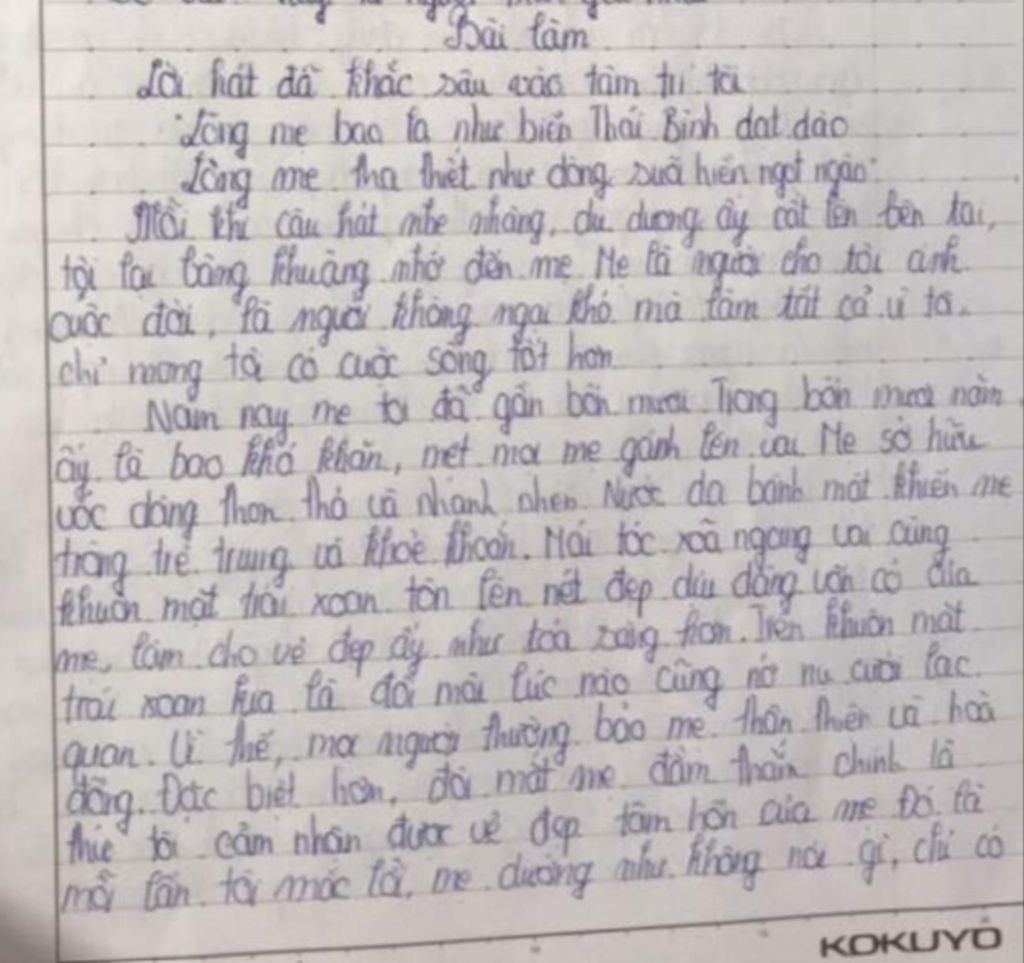 Bài làm
Lời hát đã khắc sâu vào tâm trí tôi
"Lòng mẹ bao la như biển Thái Bình dạt dào
Lòng mẹ tha thiết như dòng suối hiền ngọt ngào"
Mỗi khi câu hát nhẹ nhàng, du dương ấy cất lên bên tai,
tôi lại bâng khuâng nhớ đến mẹ. Mẹ là người cho tôi sinh
cuộc đời, là người không ngại khó mà làm tất cả vì tôi,
chỉ mong tôi có cuộc sống tốt hơn.
Năm nay mẹ tôi đã gần bốn mươi. Trong bốn mươi năm
ấy là bao khó khăn, mệt mỏi mẹ gánh lên vai. Mẹ sở hữu
vóc dáng thon thả và nhanh nhẹn. Nước da bánh mật khiến mẹ
trông trẻ trung và khoẻ khoắn. Mái tóc xoã ngang vai cùng
khuôn mặt trái xoan tôn lên nét đẹp dịu dàng vốn có của
mẹ, làm cho vẻ đẹp ấy như toả sáng hơn. Trên khuôn mặt
trái xoan kia là đôi môi lúc nào cũng nở nụ cười lạc
quan. Vì thế, mọi người thường bảo mẹ thân thiện và hoà
đồng. Đặc biệt hơn, đôi mắt mẹ đằm thắm chính là
thứ tôi cảm nhận được vẻ đẹp tâm hồn của mẹ. Đó là
mỗi lần tôi mắc lỗi, mẹ dường như không nói gì, chỉ có
KOKUYO